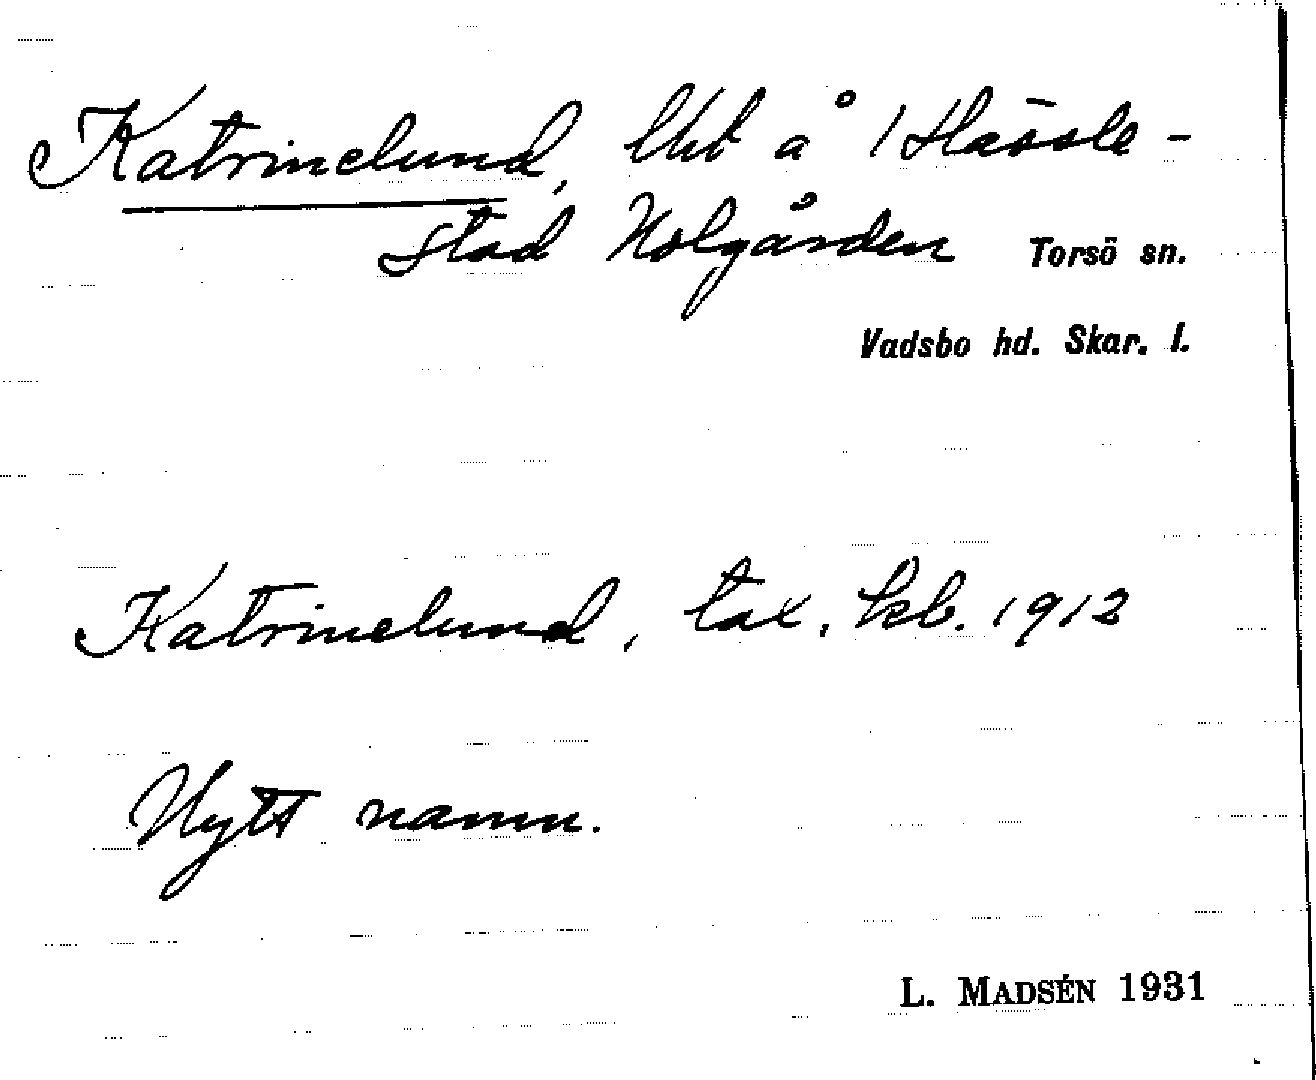 Katrinelund, lht å 1 Hassle-
stad Nolgården Torsö sn.
Vadsbo hd. Skar. l.
Katrinelund, tax. kb. 1912
Nytt namn.
L. MADSÉN 1931